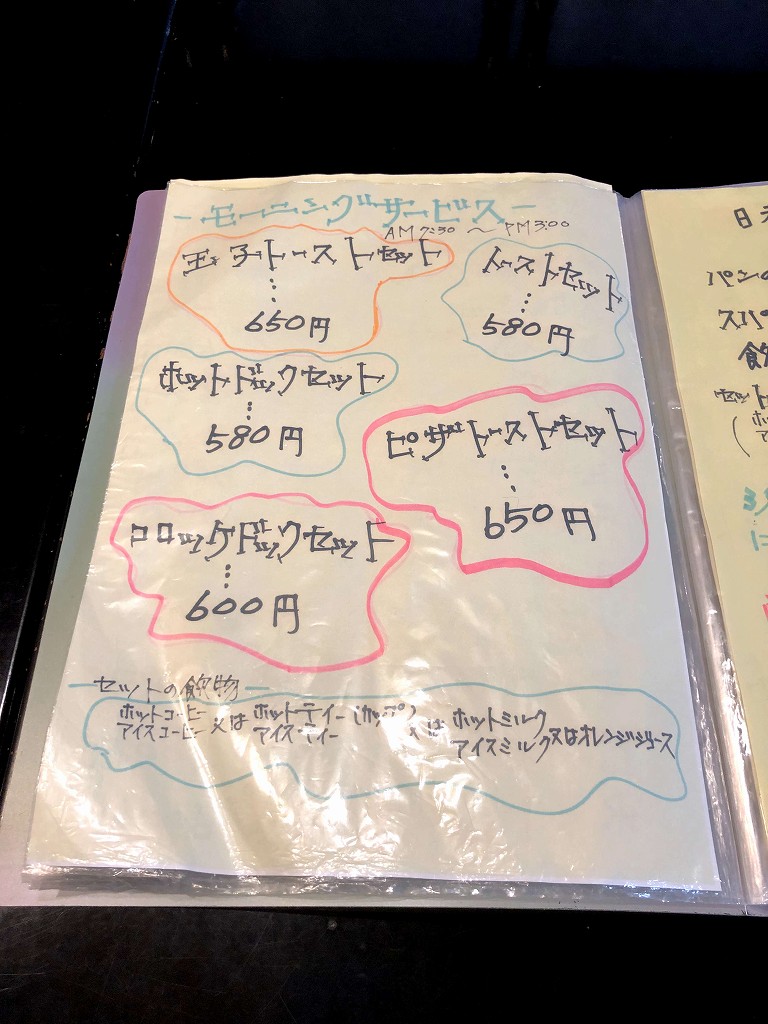 －モーニングサービス－
AM7:30 〜 PM3:00
玉子トーストセット
650円
トーストセット
580円
ホットドックセット
580円
ピザトーストセット
650円
コロッケドックセット
600円
セットの飲物
ホットコーヒー 又は ホットティー (ホップ) 又は ホットミルク
アイスコーヒー アイスティー アイスミルク又はオレンジジュース
パンの
スパ
飲
セット
ホッ
アイ